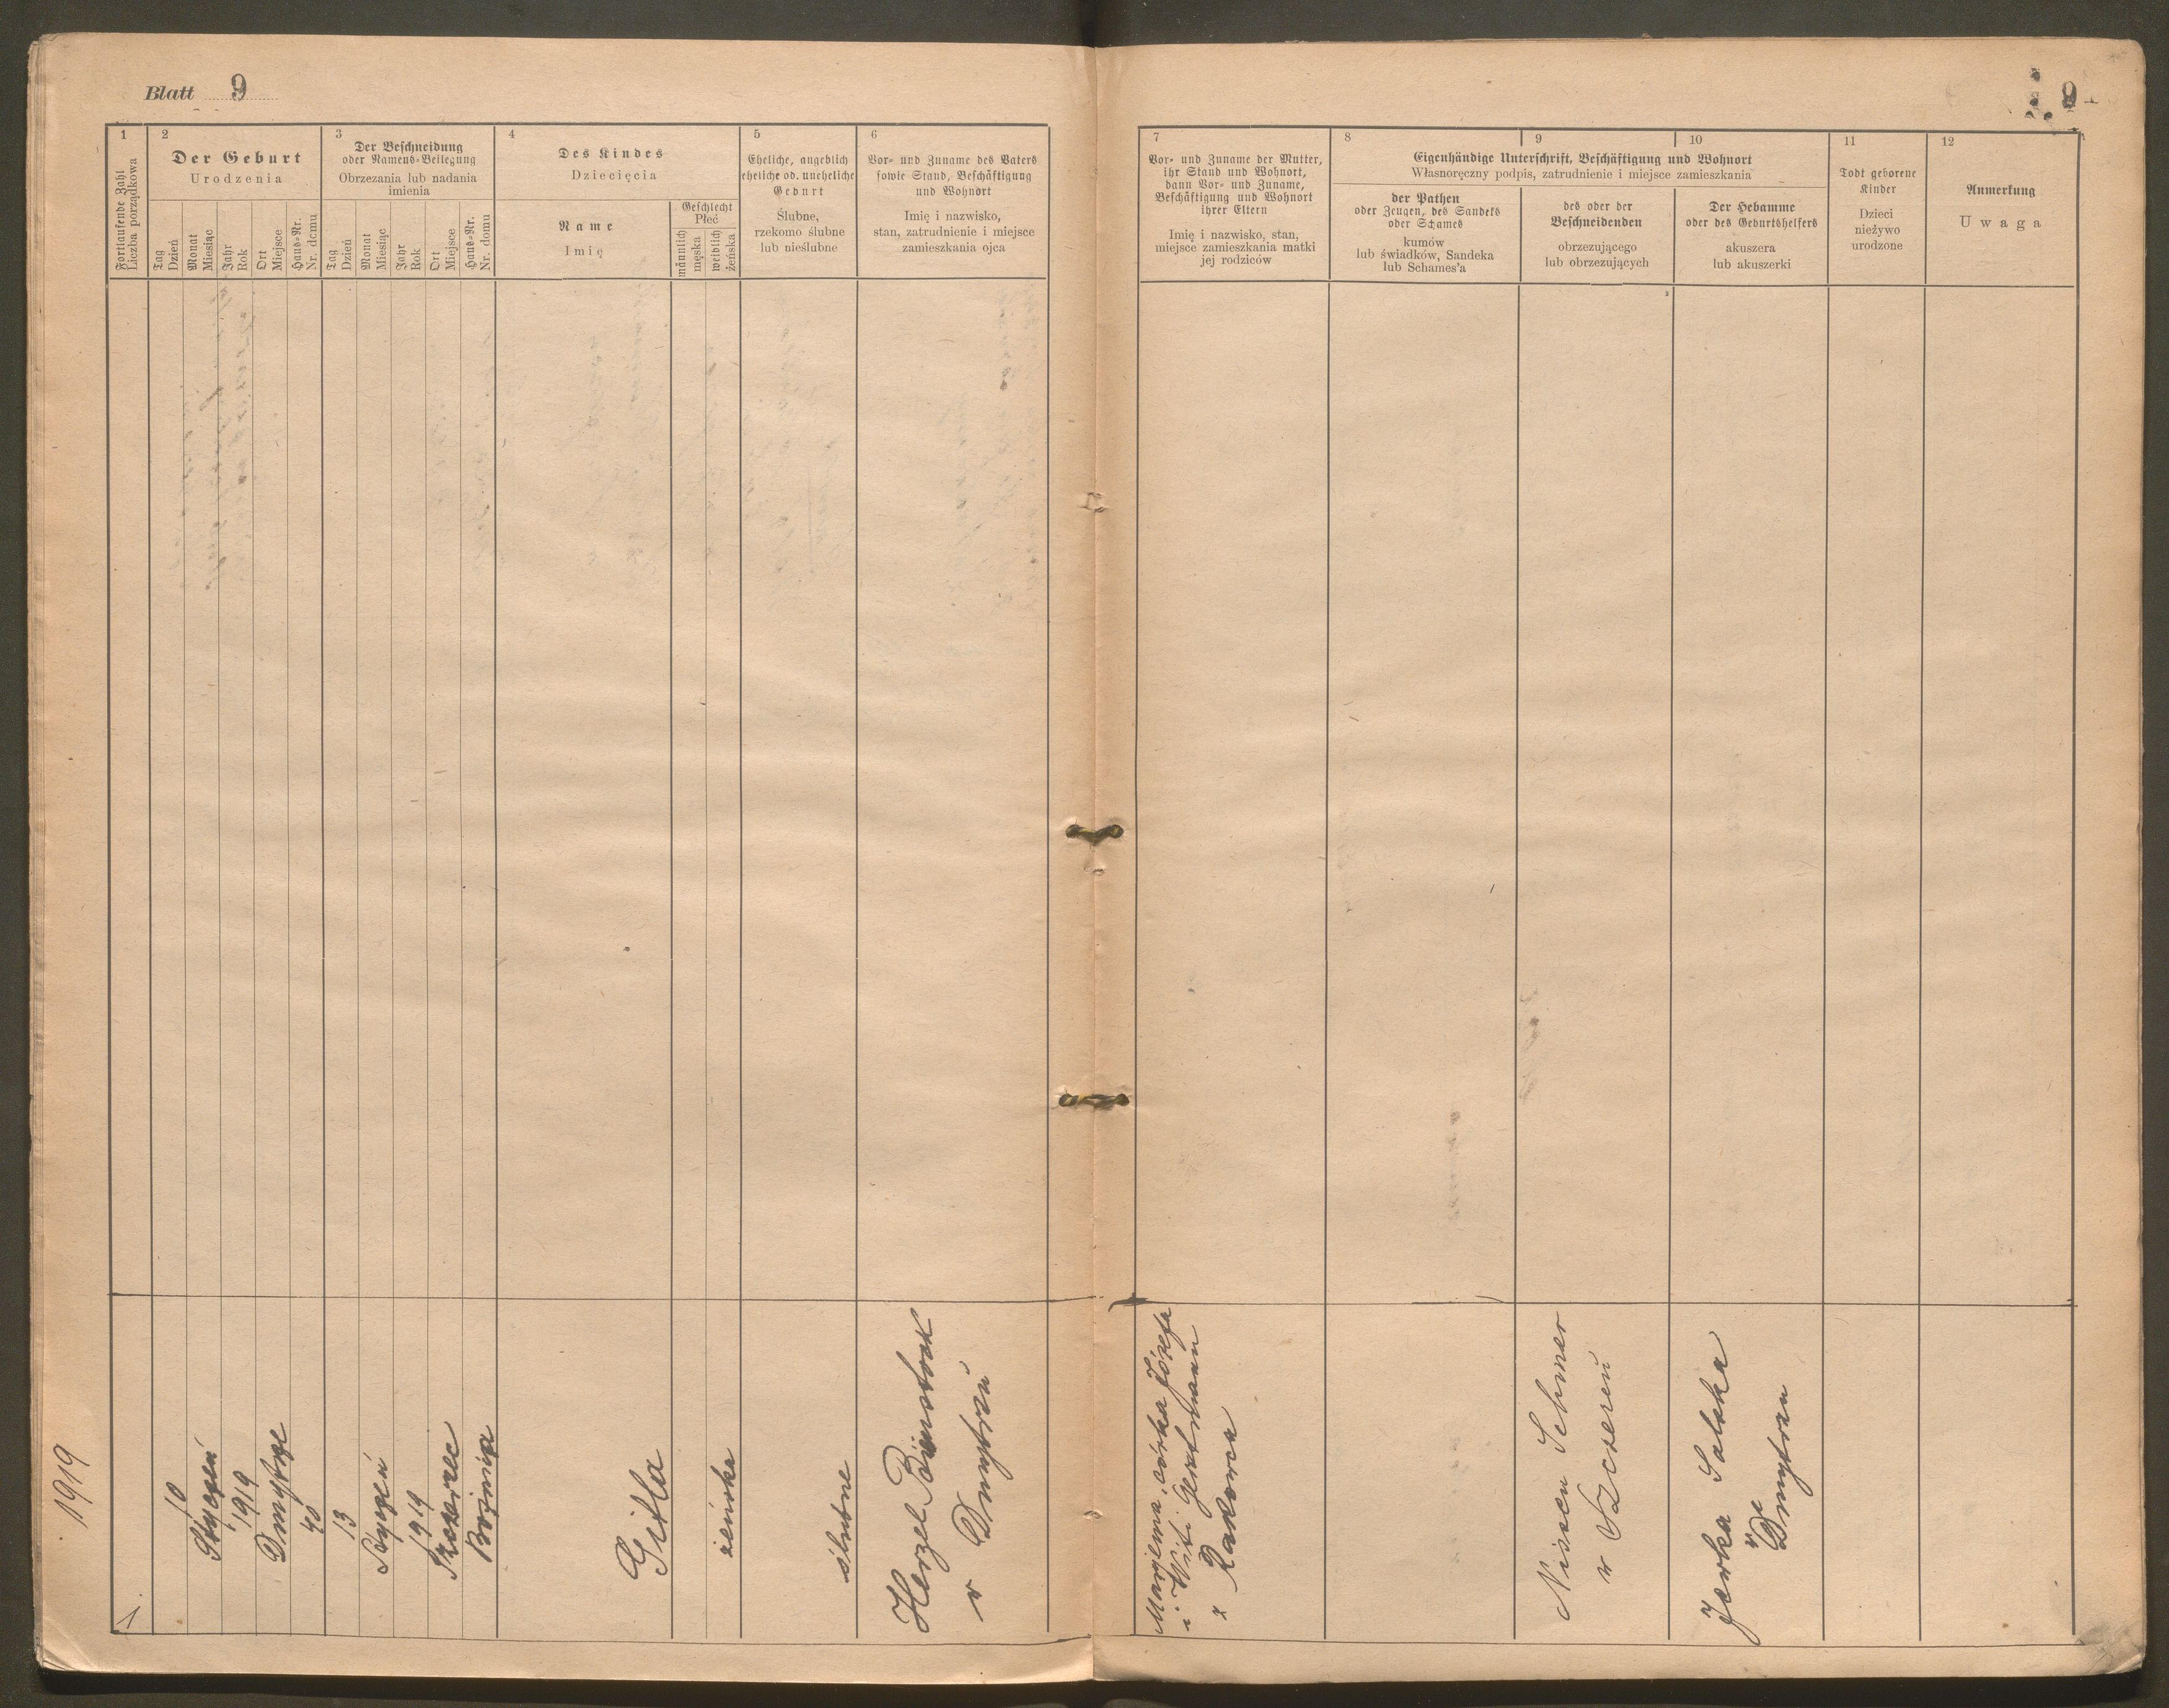 Blatt 9
9
1
Fortlaufende Zahl
Liczba porządkowa
2
Der Geburt
Urodzenia
Tag
Dzień
Monat
Miesiąc
Jahr
Rok
Ort
Miejsce
Haus-Nr.
Nr. domu
3
Der Beschneidung
oder Namens-Beilegung
Obrzezania lub nadania
imienia
Tag
Dzień
Monat
Miesiąc
Jahr
Rok
Ort
Miejsce
Haus-Nr.
Nr. domu
4
Des Kindes
Dziecięcia
Name
Imię
Geschlecht
Płeć
männlich
męska
weiblich
żeńska
5
Eheliche, angeblich
eheliche od. uneheliche
Geburt
Ślubne,
rzekomo ślubne
lub nieślubne
6
Vor- und Zuname des Vaters
sowie Stand, Beschäftigung
und Wohnort
Imię i nazwisko,
stan, zatrudnienie i miejsce
zamieszkania ojca
7
Vor- und Zuname der Mutter,
ihr Stand und Wohnort,
dann Vor- und Zuname,
Beschäftigung und Wohnort
ihrer Eltern
Imię i nazwisko, stan,
miejsce zamieszkania matki
jej rodziców
8
9
10
Eigenhändige Unterschrift, Beschäftigung und Wohnort
Własnoręczny podpis, zatrudnienie i miejsce zamieszkania
der Pathen
oder Zeugen, des Sandeks
oder Schames
kumów
lub świadków, Sandeka
lub Schames'a
des oder der
Beschneidenden
obrzezującego
lub obrzezujących
Der Hebamme
oder des Geburtshelfers
akuszera
lub akuszerki
11
Todt geborene
Kinder
Dzieci
nieżywo
urodzone
12
Anmerkung
Uwaga
1919
1
10
Styczeń
1919
Dmytrze
40
13
Styczeń
1919
Szczerzec
Bożnica
Gitla
żeńska
ślubne
Herzel
w Dmytrzu
córka Józefa
i Witi
z Rakowca
Nissen
w Szczercu
Jewka
w Dmytrzu